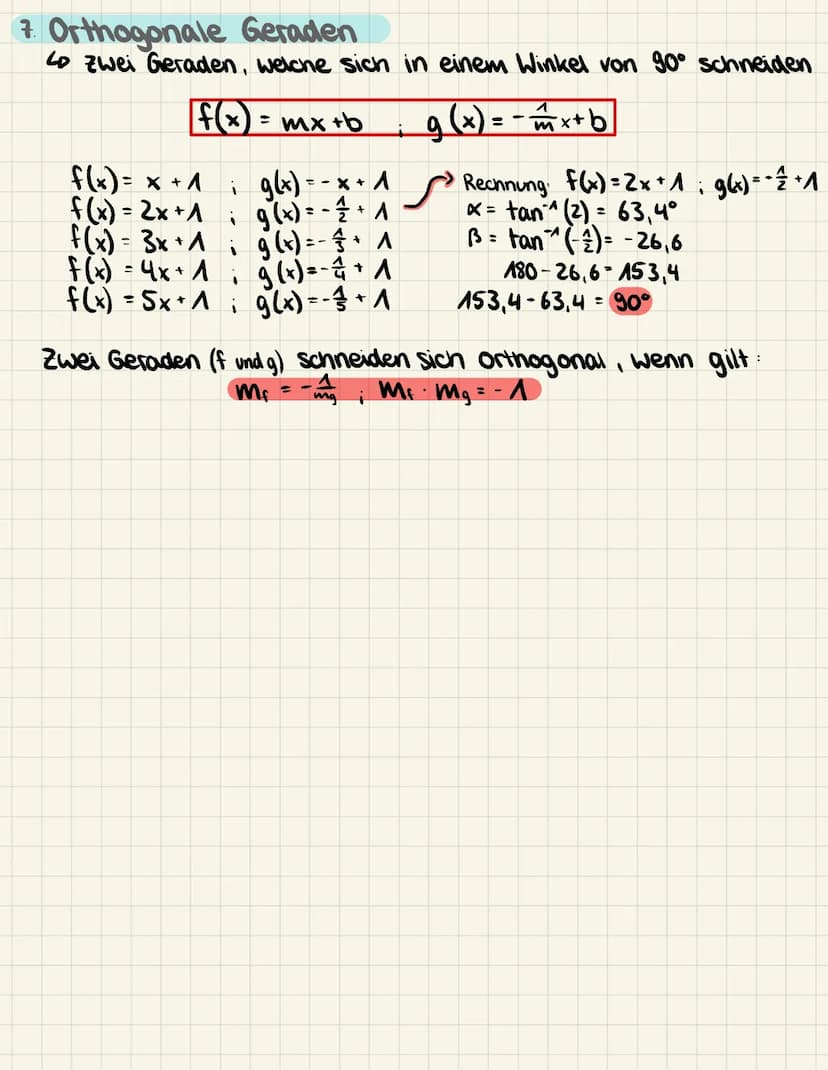 7. Orthogonale Geraden
↳ Zwei Geraden, welche sich in einem Winkel von 90° schneiden
f(x) = mx+b ; g(x) = -1/m x+b
f(x) = x + 1 ; g(x) = -x + 1
f(x) = 2x + 1 ; g(x) = -1/2 + 1
f(x) = 3x + 1 ; g(x) = -1/3 + 1
f(x) = 4x + 1 ; g(x) = -1/4 + 1
f(x) = 5x + 1 ; g(x) = -1/5 + 1
Rechnung: f(x) = 2x + 1 ; g(x) = -1/2 + 1
α = tan⁻¹ (2) = 63,4°
β = tan⁻¹ (-1/2) = -26,6
180 - 26,6 = 153,4
153,4 - 63,4 = 90°
Zwei Geraden (f und g) schneiden sich orthogonal, wenn gilt:
mf = -1/mg ; mf · mg = -1